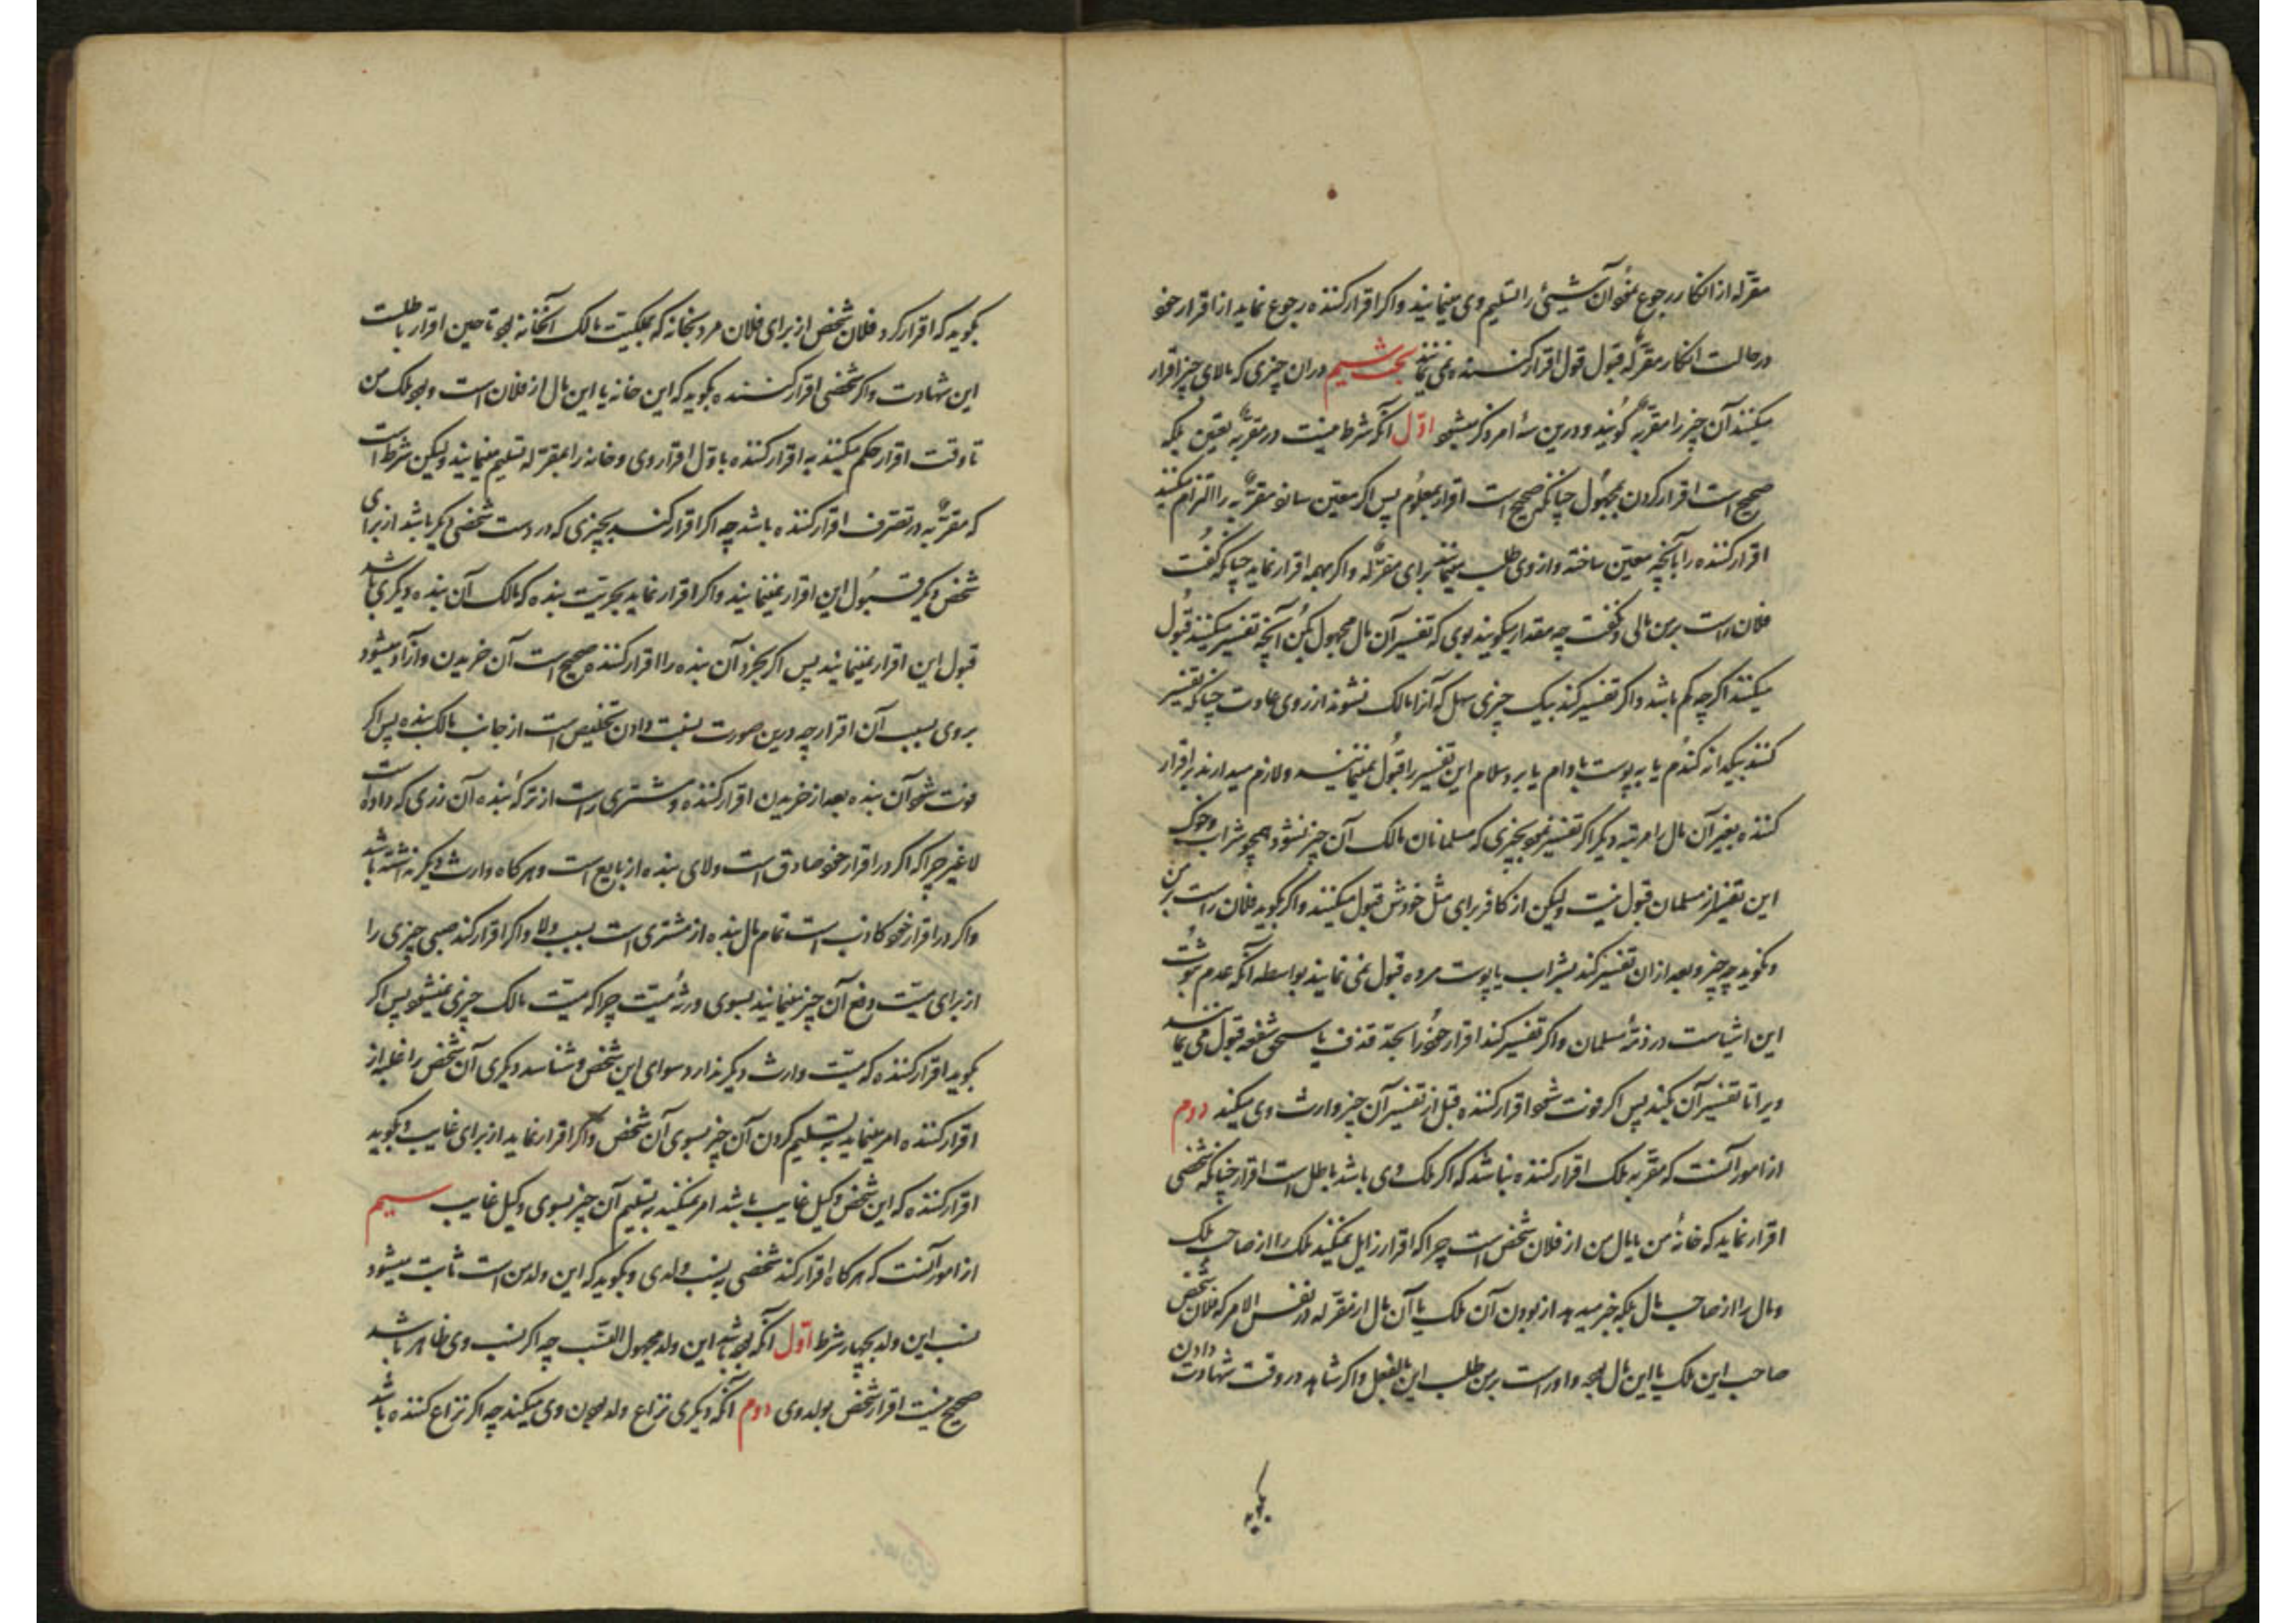 مقرّله از انکار رجوع نمود آن شیئ را تسلیم وی مینمایند و اکر اقرار کننده رجوع نماید از اقرار خود
در حالت انکار مقرّله قبول قول اقرار کننده نمی نمایند بحث سیم در ان چیزی که بالای چیز اقرار
میکنند آن چیز را مقرّبه کویند و درین سه امر ذکر میشود اوّل آنکه شرط نیست در مقرّبه تعیین بلکه
صحیح است اقرار کردن بمجهول چنانکه صحیح است اقرار بمعلوم پس اکر معین سازد مقرّبه را الزام میکنند
اقرار کننده را بآنچه معین ساخته و از وی طلب مینمایند برای مقرّله و اکر مبهم اقرار نماید چنانکه کفت
فلان راست بر من مالی و نکفت چه مقدار میکویند بوی که تفسیر آن مال مجهول بکن آنچه تفسیر میکنند قبول
میکنند اکرچه کم باشد و اکر تفسیر کند بیک چیزی سهل که آنرا مالک نشوند از روی عادت چنانکه تفسیر
کند بیکدانه کندم یا به پوست بادام یا برد سلام این تفسیر را قبول نمینمایند و لازم میدارند بر اقرار
کننده بغیر آن مال را مرتبه دیکر اکر تفسیر نمود بچیزی که مسلمانان مالک آن چیز نشود همچو شراب و خوک
این تفسیر از مسلمان قبول نیست و لیکن از کافر برای مثل خودش قبول میکنند و اکر بکوید فلان راست بر من
و نکوید چه چیز و بعد از ان تفسیر کند بشراب یا پوست مرده قبول نمی نمایند بواسطه آنکه عدم ثبوت
این اشیاست در ذمّه مسلمان و اکر تفسیر کند اقرار خود را بحدّ قذف یا حق شفعه قبول می نمایند
ویرا تا تفسیر آن بکند پس اکر فوت شود اقرار کننده قبل از تفسیر آن چیز وارث وی میکند دوم
از امور آنست که مقرّبه ملک اقرار کننده نباشد که اکر ملک وی باشد باطل است اقرار چنانکه شخصی
اقرار نماید که خانهٔ من یا مال من از فلان شخص است چراکه اقرار زایل نمیکند ملک را از صاحب ملک
و مال را از صاحب مال بلکه خبر میدهد از بودن آن ملک یا آن مال از مقرّله در نفس الامر که فلان شخص
صاحب این ملک یا این مال بود و اوراست بر من طلب این بالفعل و اکر شاهد در وقت شهادت دادن
بکوید
بکوید که اقرار کرد فلان شخص از برای فلان مرد بخانه که بملکیت مالک آنخانه بود تا حین اقرار باطلست
این شهادت و اکر شخصی اقرار کننده بکوید که این خانه یا این مال از فلان است و بود ملک من
تا وقت اقرار حکم میکنند به اقرار کننده باوّل اقرار وی و خانه را بمقرّ له تسلیم مینمایند و لیکن شرط است
که مقرّبه در تصرف اقرار کننده باشد چه اکر اقرار کند بچیزی که در دست شخصی دیکر باشد از برای
شخص دیکر قبول این اقرار نمینمایند و اکر اقرار نماید بحریّت بنده که مالک آن بنده دیکری باشد
قبول این اقرار نمینمایند پس اکر بخرد آن بنده را اقرار کننده صحیح است آن خریدن و آزاد میشود
بروی بسبب آن اقرار چه درین صورت نسبت دادن تخلیص است از جانب مالک بنده پس اکر
فوت شود آن بنده بعد از خریدن اقرار کننده و مشتری راست از ترکهٔ بنده آن زری که داده است
لا غیر چراکه اکر در اقرار خود صادق است ولای بنده از بایع است و هرکاه وارث دیکر نداشته باشد
و اکر در اقرار خود کاذب است تمام مال بنده از مشتری است بسبب ولا و اکر اقرار کند صبی چیزی را
از برای میّت دفع آن چیز مینمایند بسوی ورثهٔ میّت چراکه میّت مالک چیزی نمیشود پس اکر
بکوید اقرار کننده که میّت وارث دیکر ندارد سوای این شخص و نشناسد دیکری آن شخص را غیر از
اقرار کننده امر مینماید به تسلیم کردن آن چیز بسوی آن شخص و اکر اقرار نماید از برای غایب و بکوید
اقرار کننده که این شخص وکیل غایب باشد امر نمیکنند به تسلیم آن چیز بسوی وکیل غایب سیم
از امور آنست که هرکاه اقرار کند شخصی به نسب ولدی و بکوید که این ولد من است ثابت میشود
نسب این ولد بچهار شرط اوّل آنکه بوده باشد این ولد مجهول النّسب چه اکر نسب وی ظاهر باشد
صحیح نیست اقرار شخص بولدی وی دوم آنکه دیکری نزاع ولد بودن وی میکند چه اکر نزاع کننده باشد